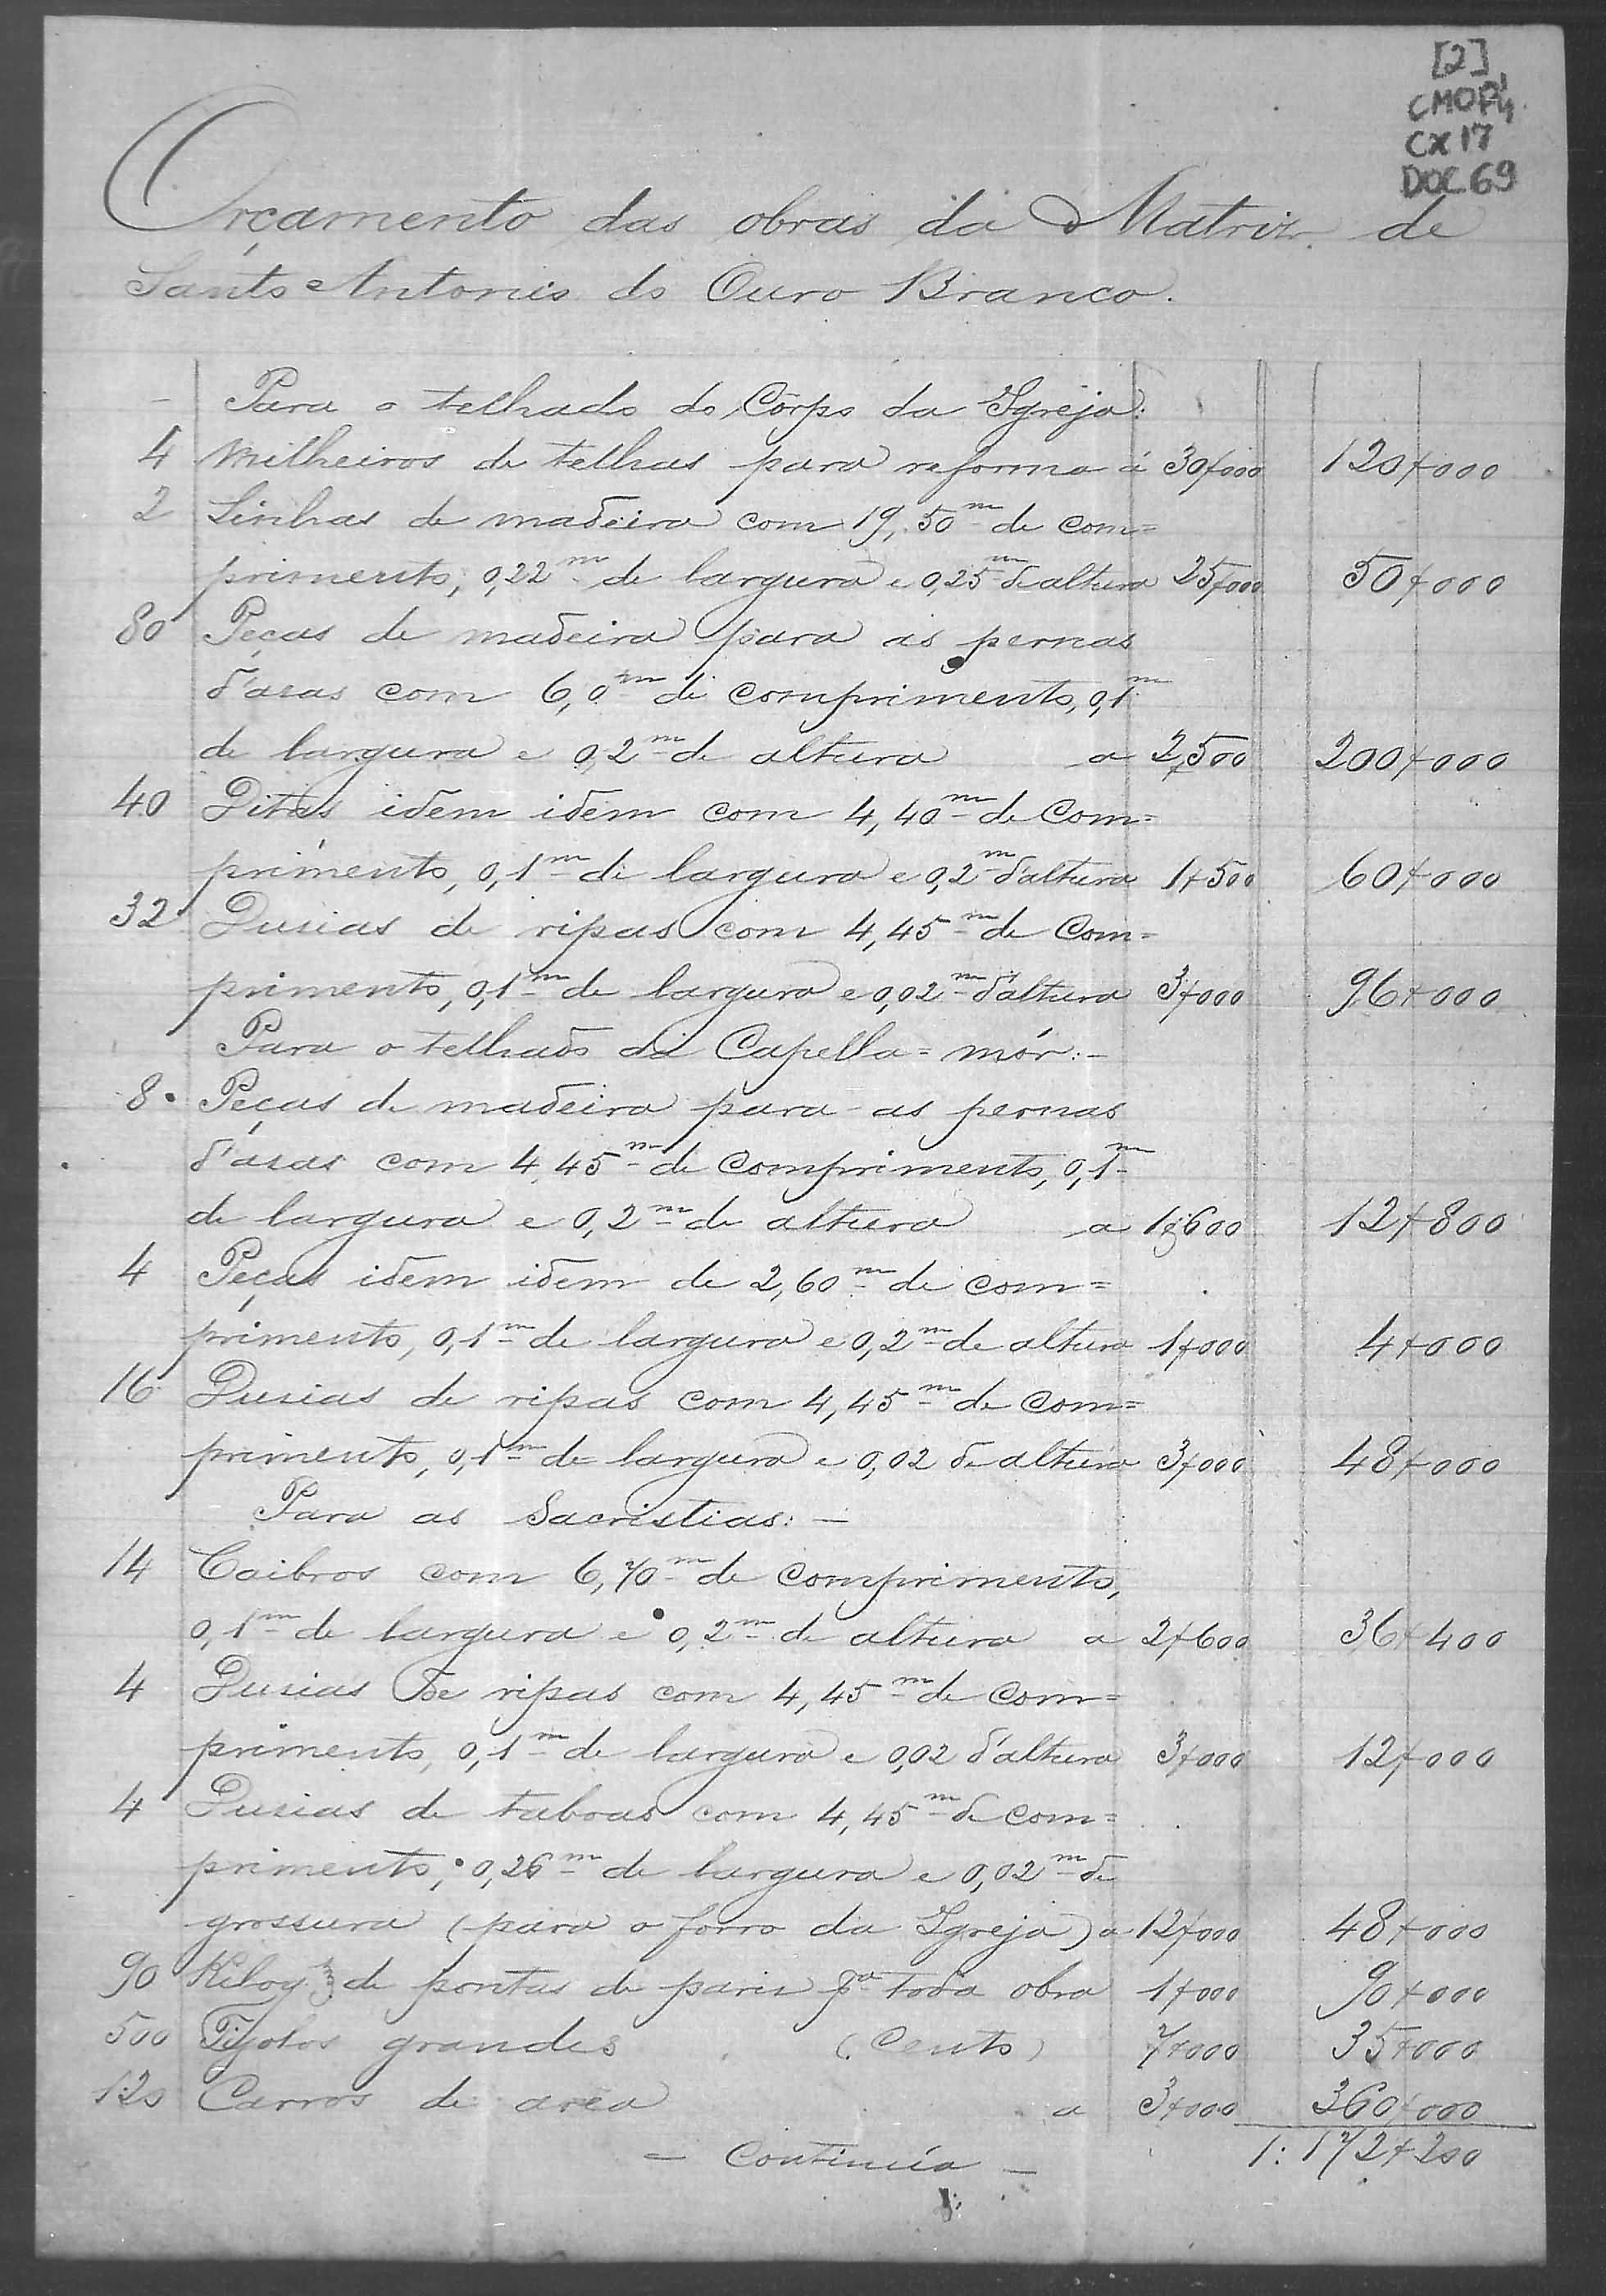 [2]
CMOP 1/4
CX17
DOC 69
Orçamento das obras da Matriz de
Santo Antonio do Ouro Branco.
- Para o telhado do Côrpo da Igreja:
4 Milheiros de telhas para reforma á 30$000 120$000
2 Linhas de madeira com 19,50m de com=
primento, 0,22m de largura e 0,25m de altura 25$000 50$000
80 Peças de madeira para as pernas
d'asas com 6,0m de comprimento, 0,1m
de largura e 0,2m de altura a 2$500 200$000
40 Ditas idem idem com 4,40m de Com=
primento, 0,1m de largura e 0,2m d'altura 1$500 60$000
32 Dusias de ripas com 4,45m de Com=
primento, 0,1m de largura e 0,02m d'altura 3$000 96$000
Para o telhado da Capella=mór:-
8 Peças de madeira para as pernas
d'asas com 4,45m de Comprimento, 0,1m
de largura e 0,2m de altura a 1$600 12$800
4 Peças idem idem de 2,60m de com=
primento, 0,1m de largura e 0,2m de altura 1$000 4$000
16 Dusias de ripas com 4,45m de Com=
primento, 0,1m de largura e 0,02 de altura 3$000 48$000
Para as Sacristias: -
14 Caibros com 6,70m de Comprimento,
0,1m de largura e 0,2m de altura a 2$600 36$400
4 Dusias de ripas com 4,45m de Com=
primento, 0,1m de largura e 0,02 d'altura 3$000 12$000
4 Dusias de taboas com 4,45m de com=
primento; 0,26m de largura e 0,02m de
grossura (para o forro da Igreja) a 12$000 48$000
90 Kilog de pontas de paris pa toda obra 1$000 90$000
500 Tijolos grandes (Cento) 7$000 35$000
120 Carros de area a 3$000 360$000
= Continúa - 1:172$200